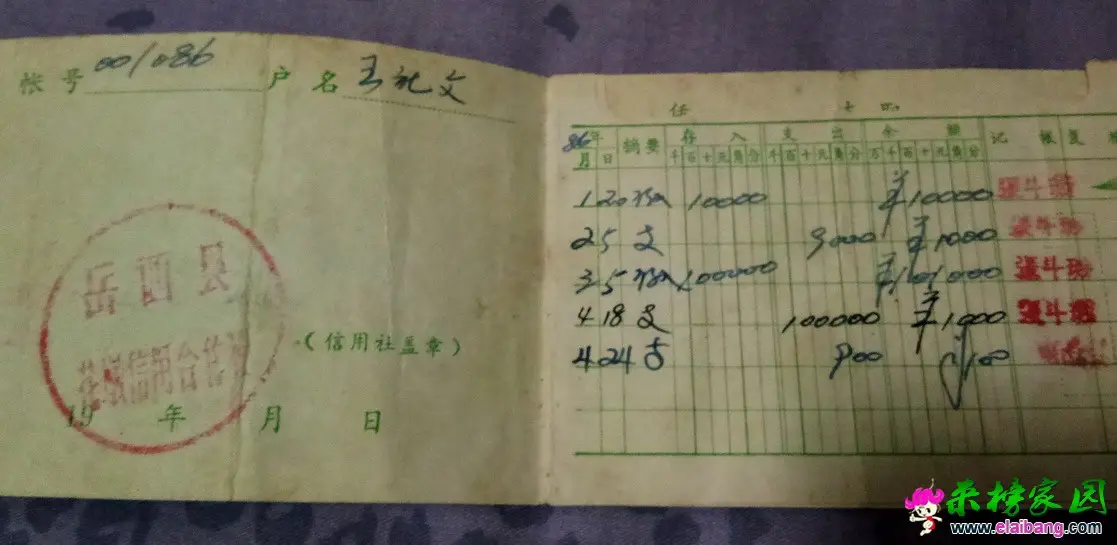 帐号 001086 户名 王礼文
岳西县
信用合作社
(信用社盖章)
19 年 月 日
86年 摘要 存入 支出 余额 记帐 复
月 日 千百十元角分 千百十元角分 万千百十元角分
1 20 10000 10000
2 5 支 9000 1000
3 5 100000 101000
4 18 支 100000 1000
4 24 支 900 100
来榜家园
www.elaibang.com